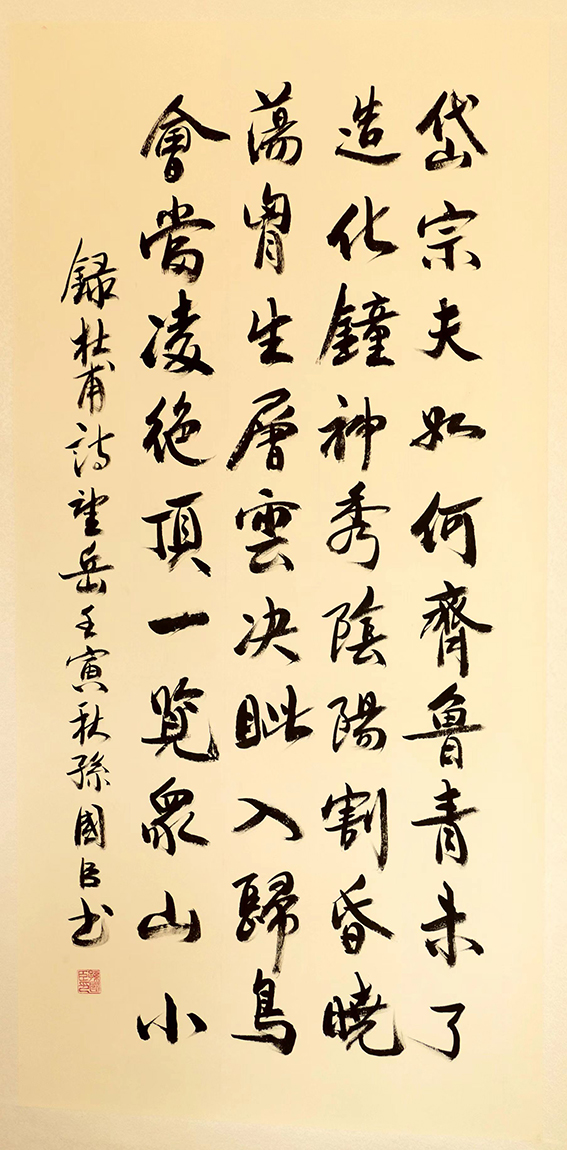 岱宗夫如何齊魯青未了
造化鐘神秀陰陽割昏曉
蕩胷生層雲决眥入歸鳥
會當凌絶頂一覽衆山小
録杜甫詩望岳壬寅秋孫國臣书